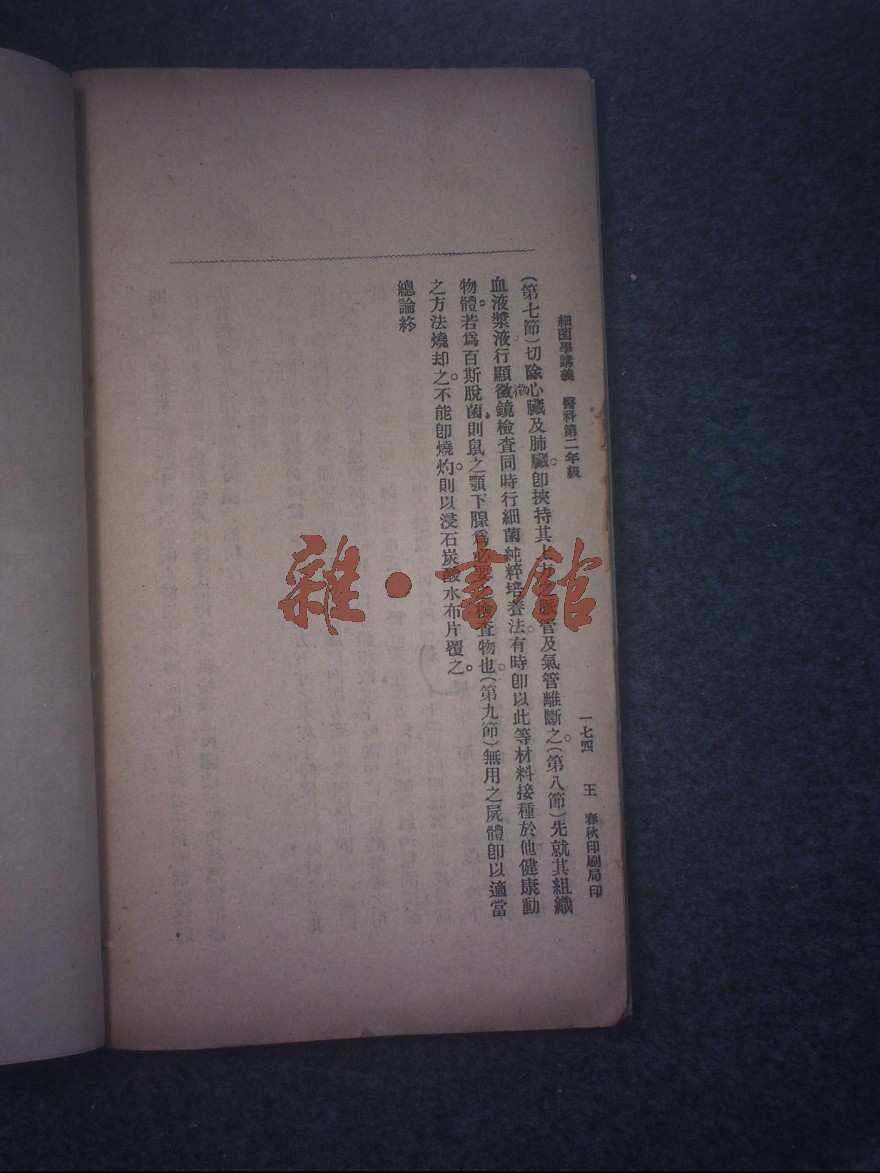 細菌學講義 醫科第二年級 一七四 王 春秋印刷局印
(第七節)切除心臟及肺臟。卽挾持其大血脈管及氣管離斷之。(第八節)先就其組織
血液漿液行顯微鏡檢查同時行細菌純粹培養法。有時卽以此等材料接種於他健康動
物體。若爲百斯脫菌則鼠之顎下腺爲必要之檢查物也。(第九節)無用之屍體卽以適當
之方法燒却之。不能卽燒灼。則以浸石炭酸水布片覆之。
總論終
微
雜·書館